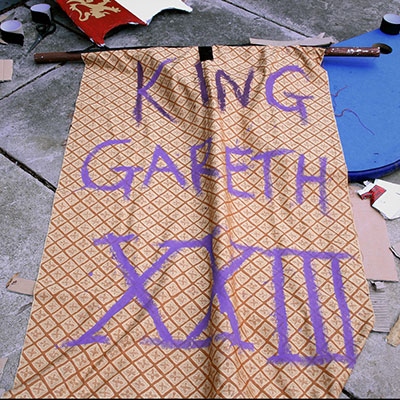 KING
GARETH
XXIII